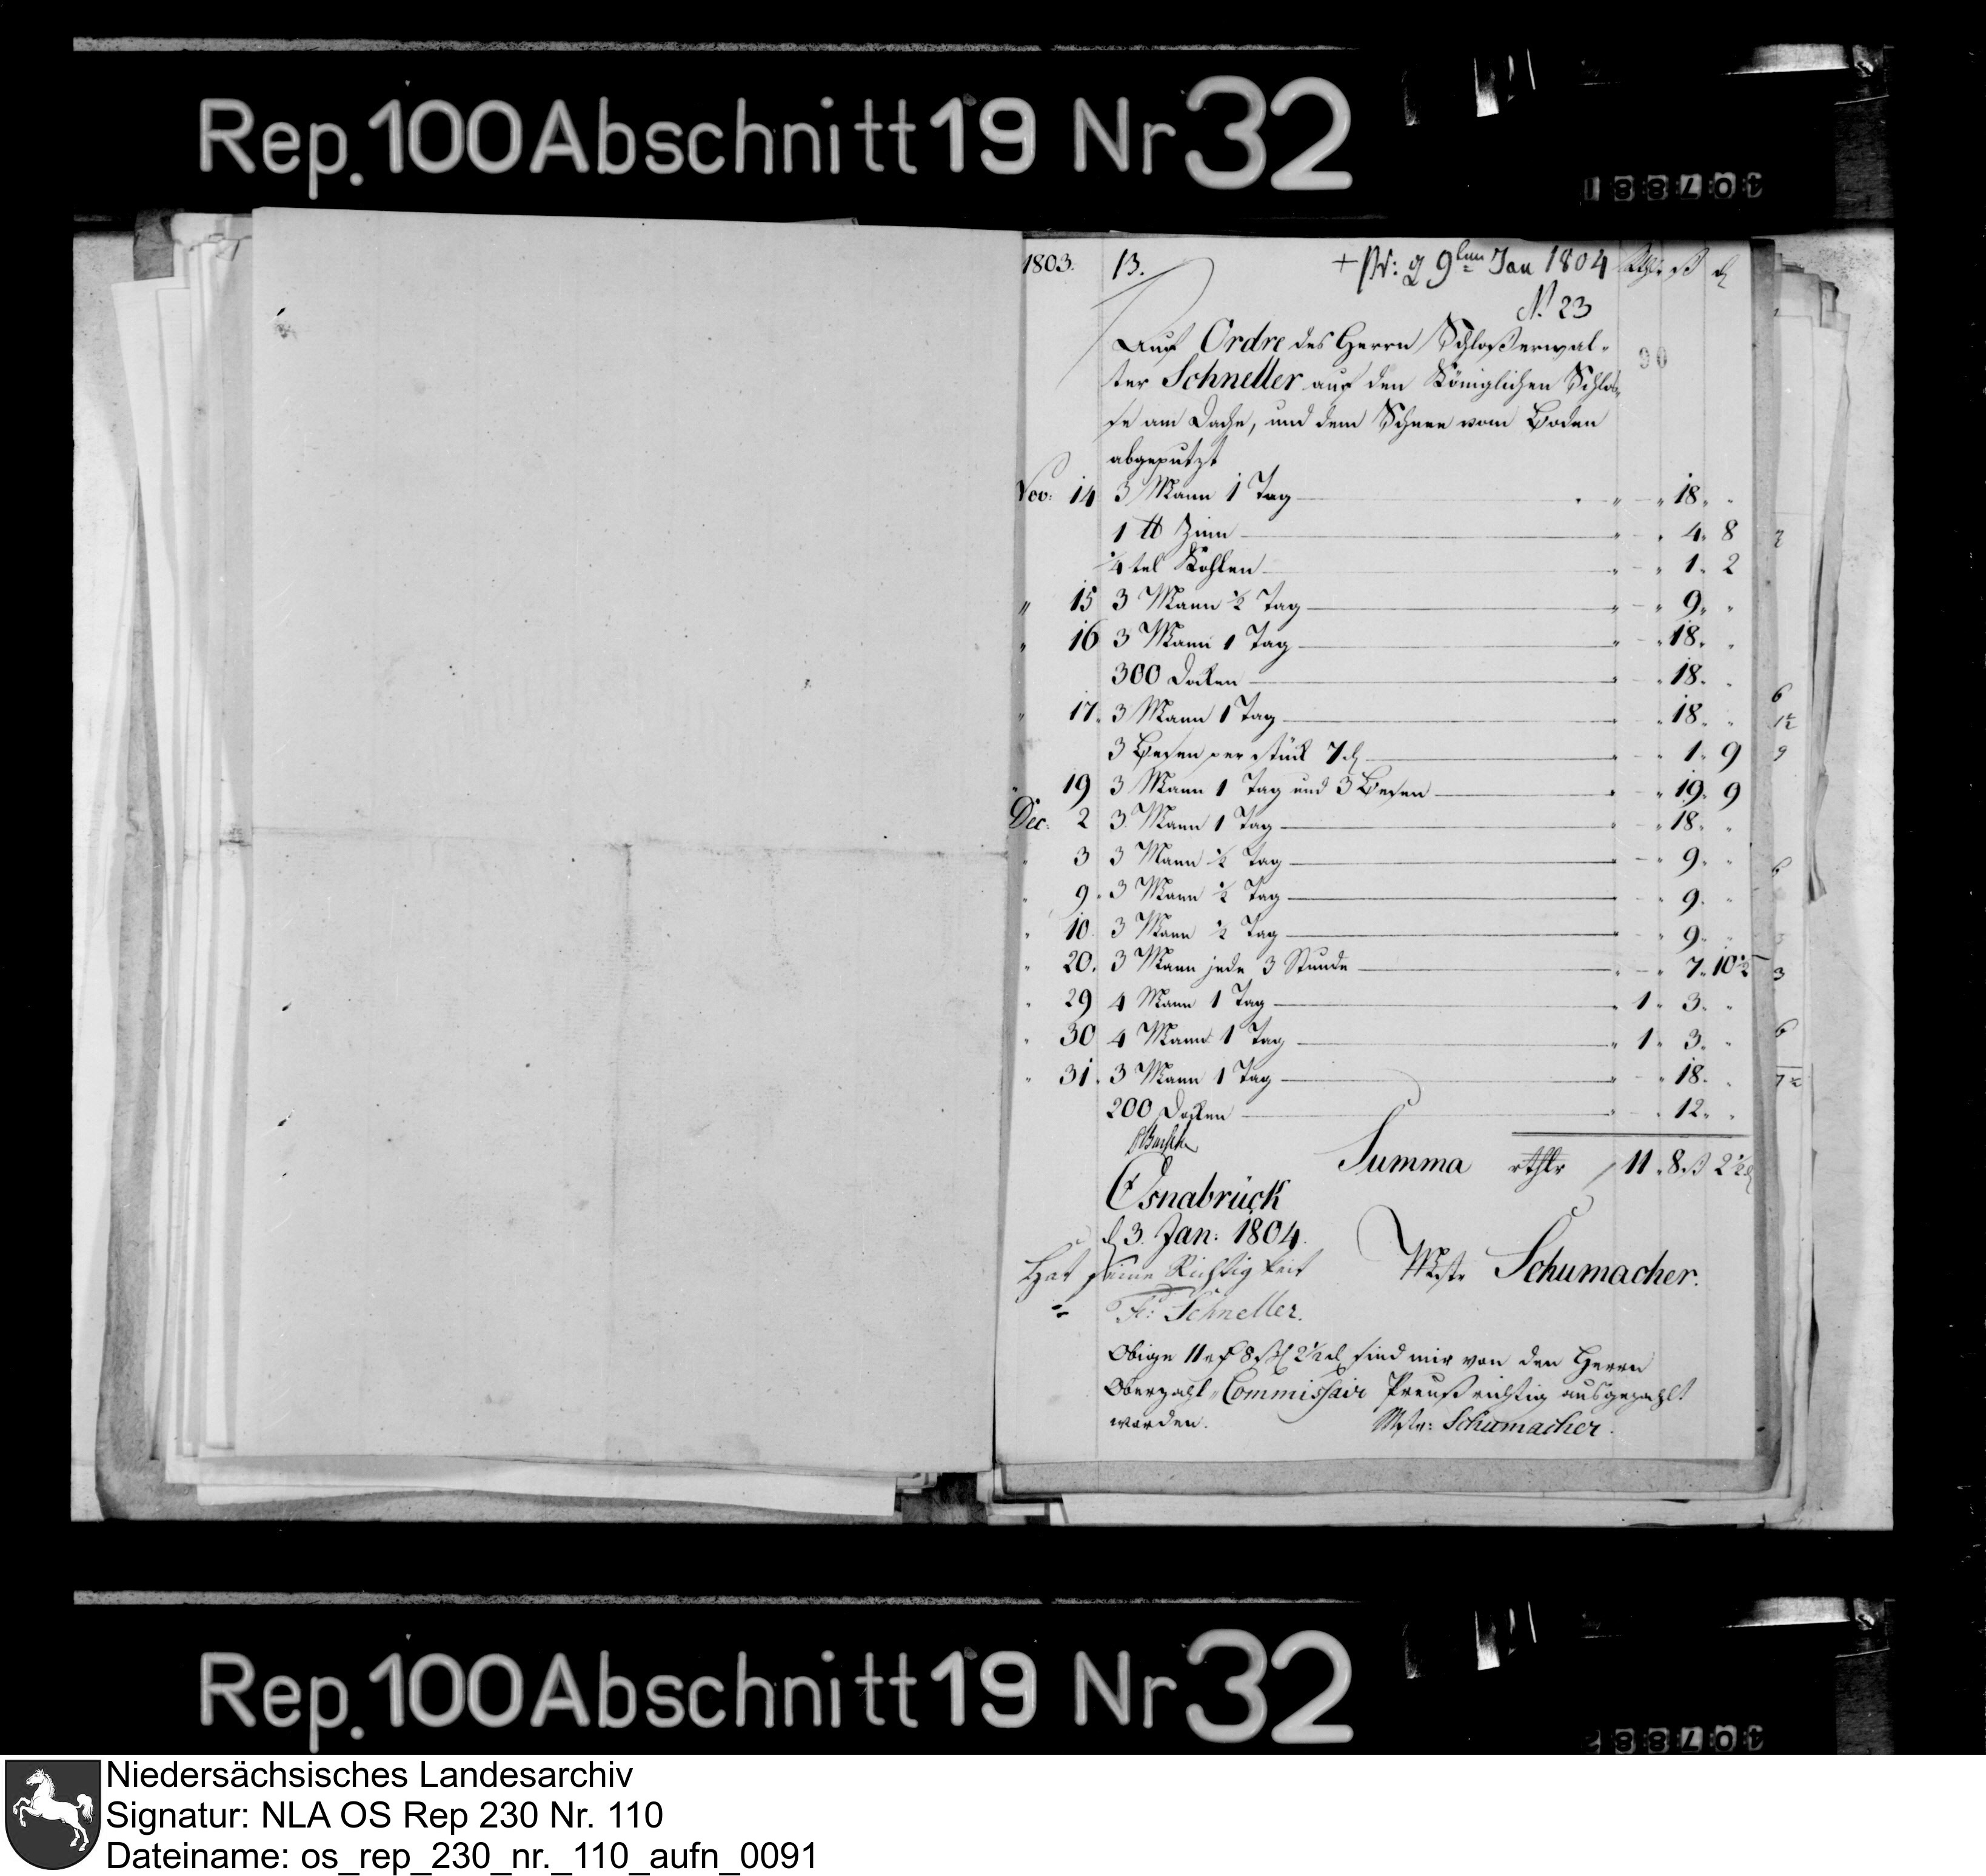 Rep. 100 Abschnitt 19 Nr 32
1803. 13. + Pr: 9 Jan 1804 Rthlr ß ₰
N° 23
Auf Ordre des Herrn Schloßerwal-
90
ter Schneller auf den Königlichen Schlo-
ße am Dache, und dem Schnee vom Boden
abgeputzt
Nov: 14 3 Mann 1 Tag " " 18 "
1 ℔ Zinn " " 4 " 8
1/4 tel Kohlen " " 1 " 2
" 15 3 Mann 1/2 Tag " " 9 "
" 16 3 Mann 1 Tag " " 18 "
300 Docken " " 18 "
" 17. 3 Mann 1 Tag " " 18 "
3 Besen per stück 7 ₰ " " 1 " 9
" 19 3 Mann 1 Tag und 3 Besen " " 19 " 9
Dec: 2 3 Mann 1 Tag " " 18 "
" 3 3 Mann 1/2 Tag " " 9 "
" 9. 3 Mann 1/2 Tag " " 9 "
" 10. 3 Mann 1/2 Tag " " 9 "
" 20. 3 Mann jede 3 Stunde " " 7 " 10 1/2
" 29 4 Mann 1 Tag " 1 " 3 "
" 30 4 Mann 1 Tag " 1 " 3 "
" 31. 3 Mann 1 Tag " " 18 "
200 Docken " " 12 "
Summa rthlr 11 " 8 ß 2 1/2 ₰
Osnabrück
d 3. Jan: 1804.
Hat seine Richtigkeit
Mstr Schumacher.
Fr: Schneller.
Obige 11 rf 8 ß 2 1/2 ₰ sind mir von den Herrn
Oberzahl-Commissair Preuß richtig ausgezahlt
worden. Mstr: Schumacher.
Rep. 100 Abschnitt 19 Nr 32
Niedersächsisches Landesarchiv
Signatur: NLA OS Rep 230 Nr. 110
Dateiname: os_rep_230_nr._110_aufn_0091